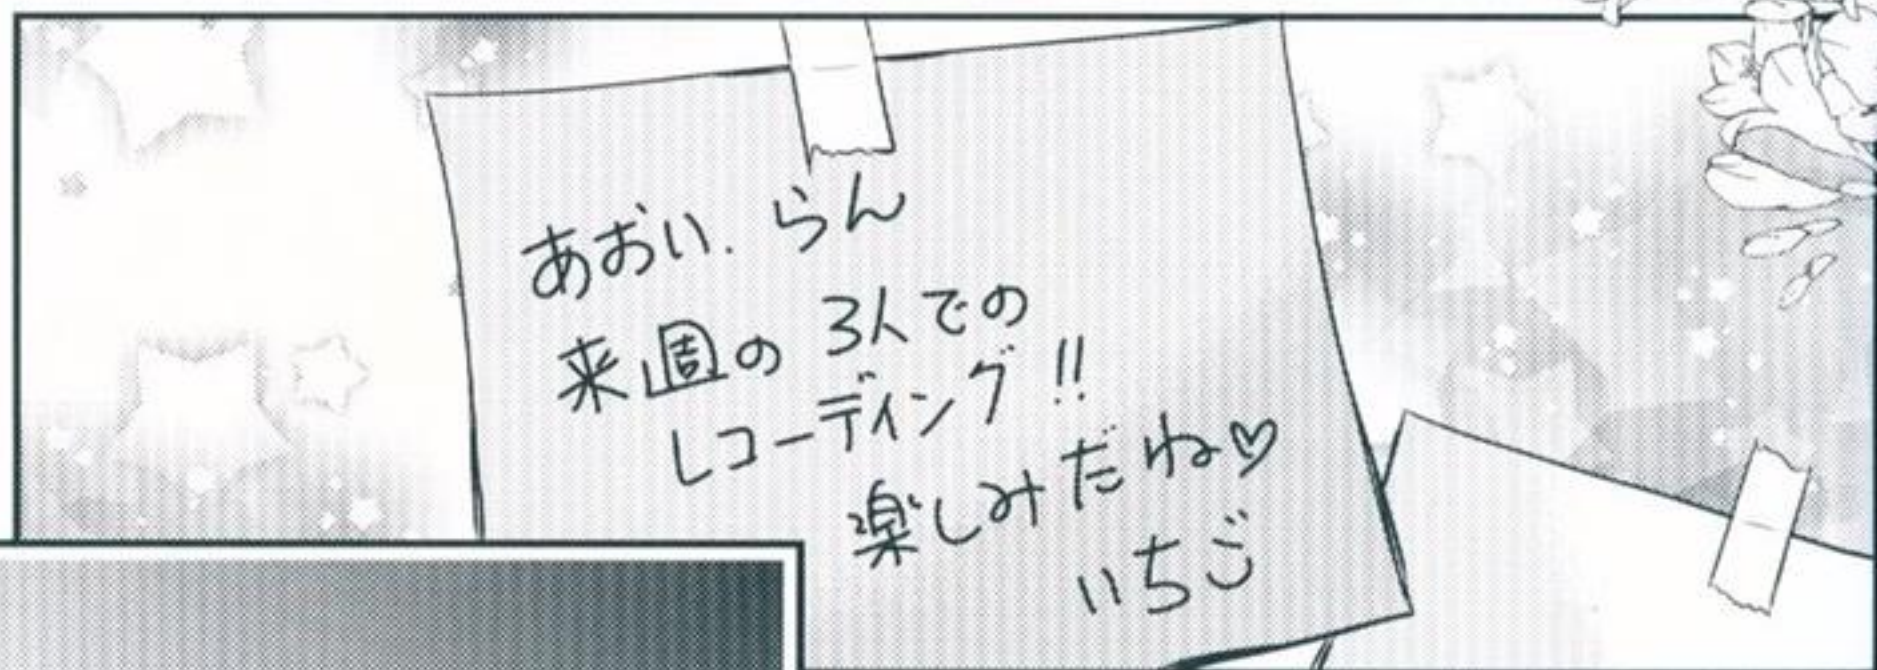 あおい.らん
来週の3人での
レコーディング!!
楽しみだね♡
いちご